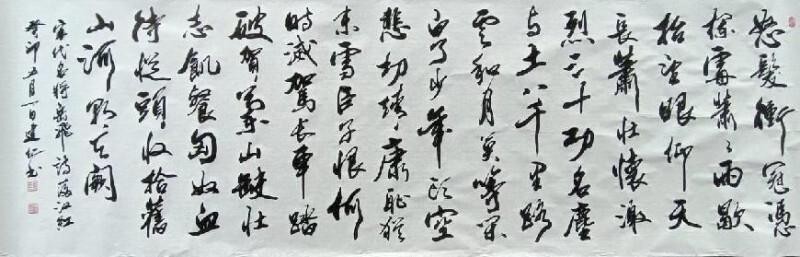 怒髮衝冠憑
欄處蕭蕭雨歇
抬望眼仰天
長嘯壯懷激
烈三十功名塵
与土八千里路
雲和月莫等閑
白了少年頭空
悲切靖康恥猶
未雪臣子恨何
時滅駕長車踏
破賀蘭山缺壯
志飢餐匈奴血
待從頭收拾舊
山河朝天闕
宋代名將岳飛詩滿江紅
癸卯五月一日建書